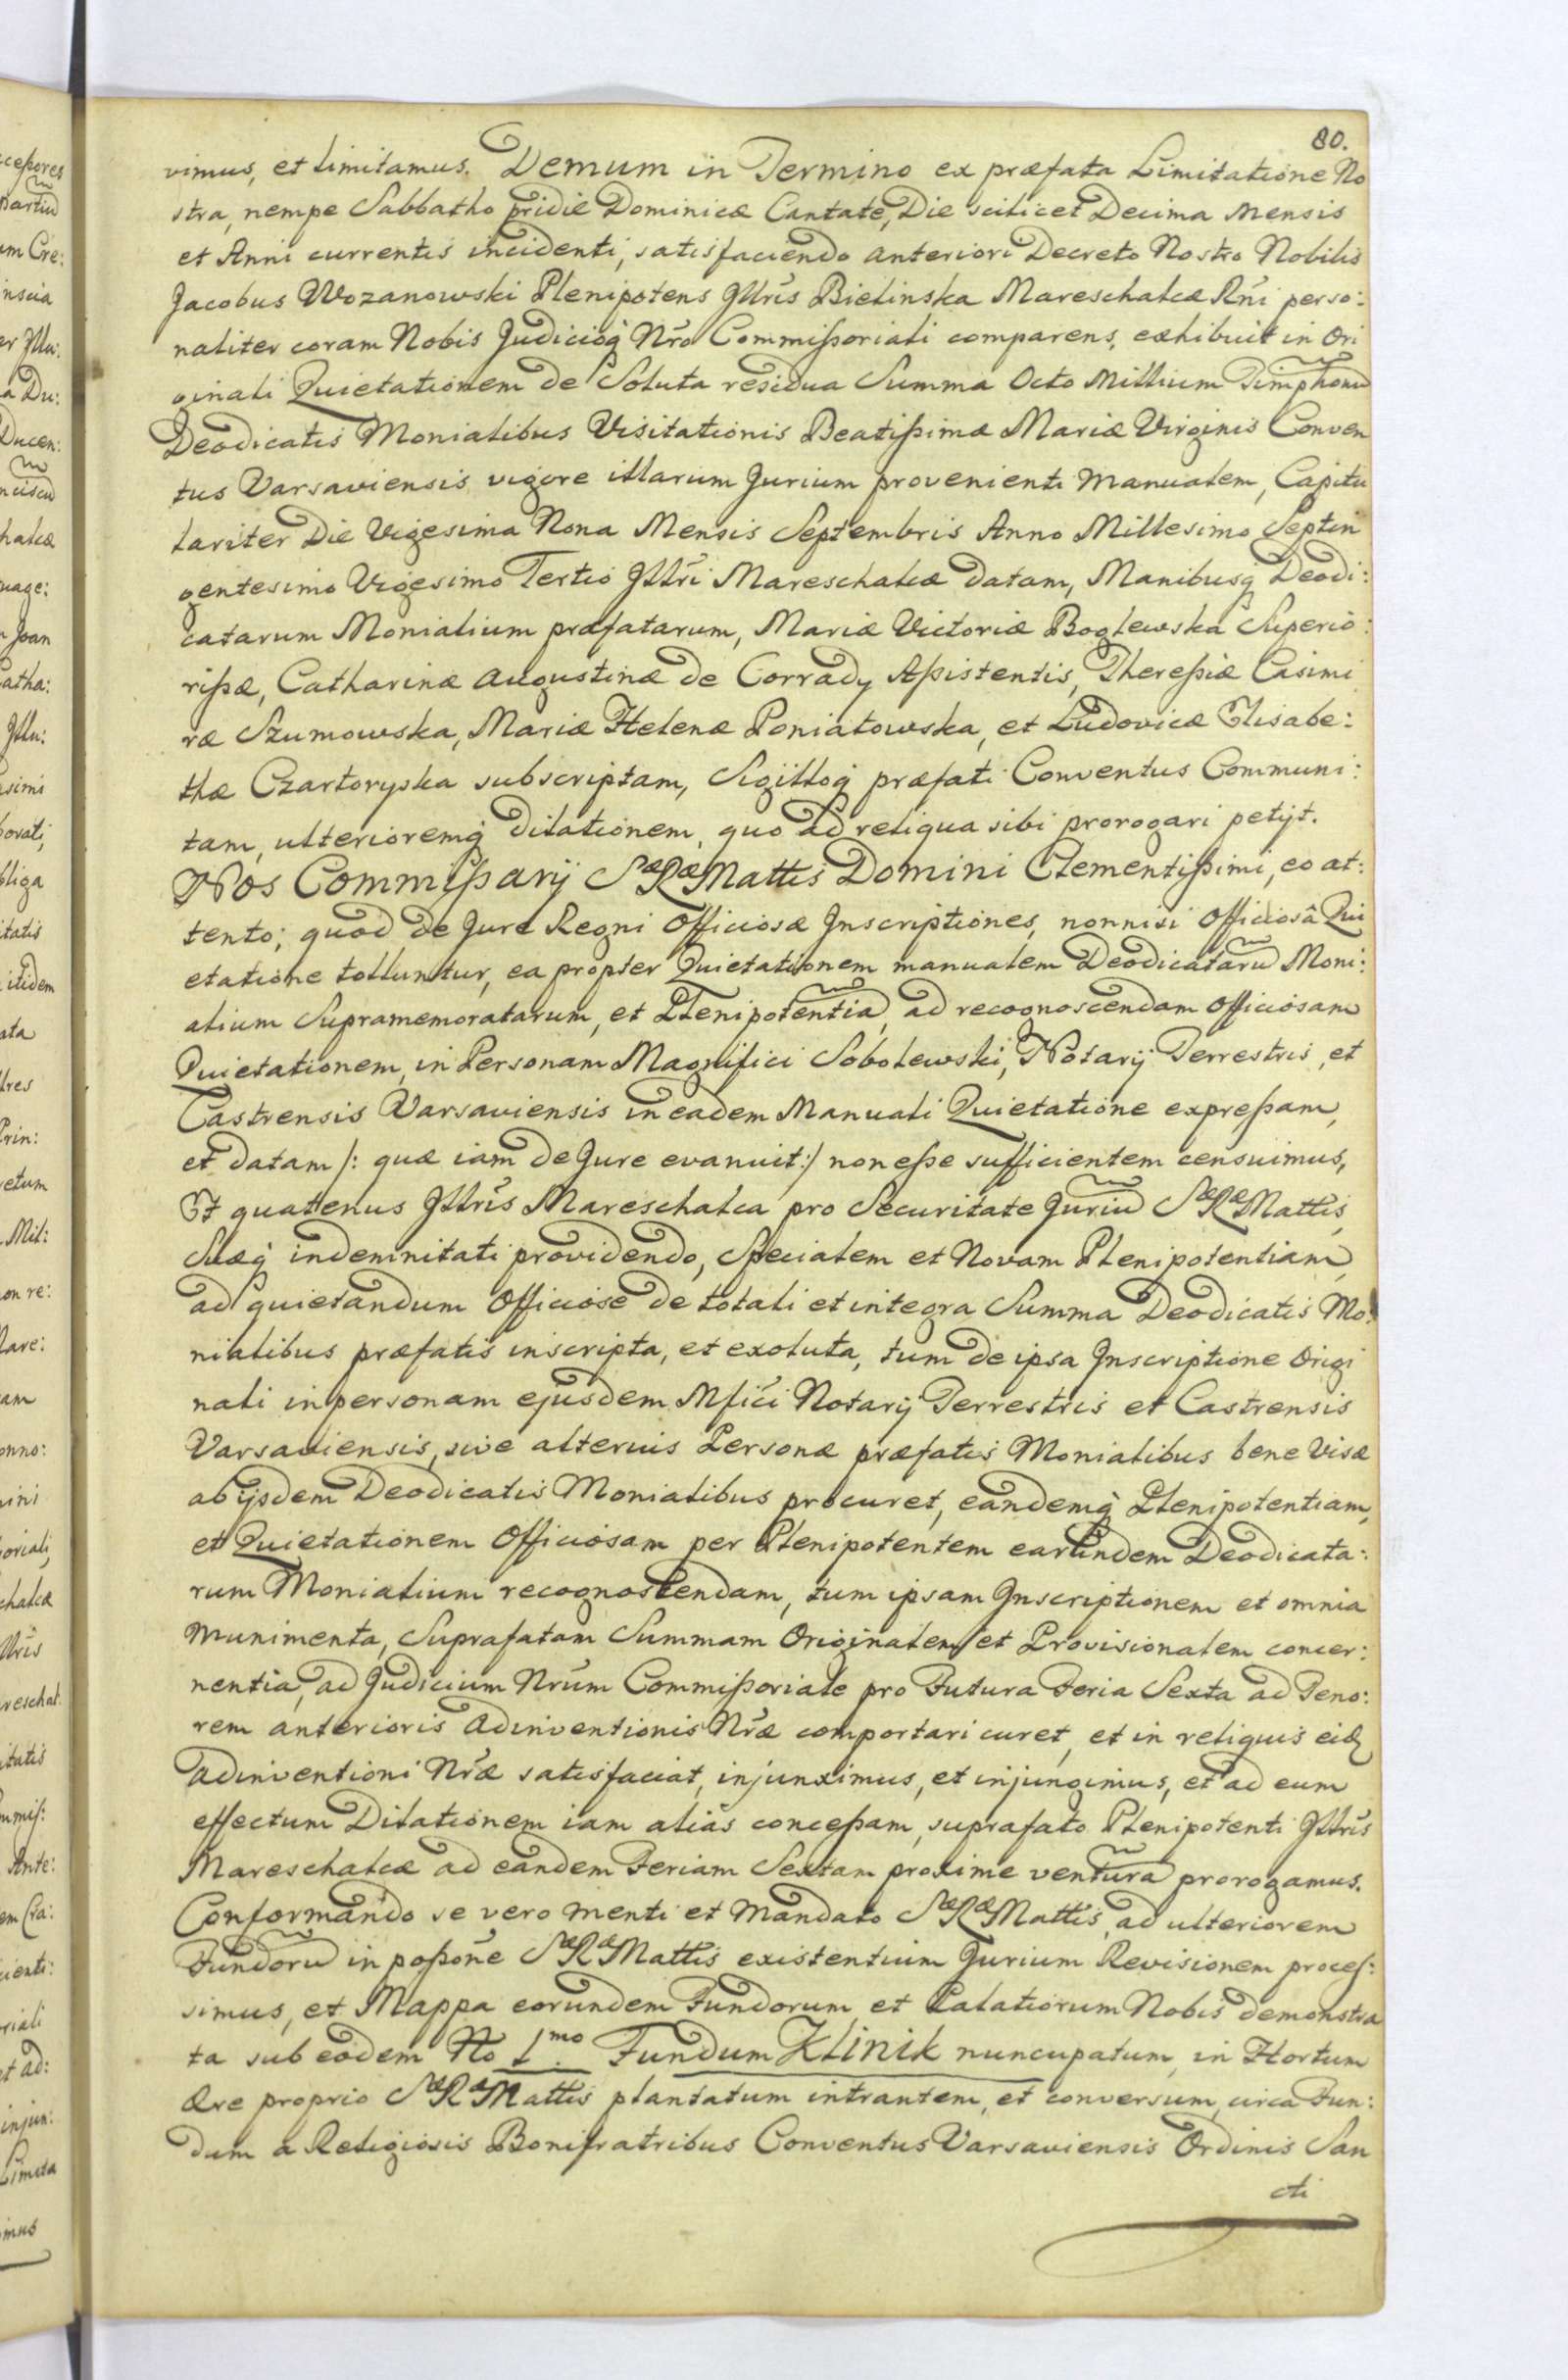 80.
vimus, et limitamus. Demum in Termino ex præfata Limitatione No
stra, nempe Sabbatho pridie Dominicæ Cantate, Die scilicet Decima Mensis
et Anni currentis incidenti, satisfaciendo anteriori Decreto Nostro Nobilis
Jacobus Wozanowski Plenipotens Jllrīs Bielinska Mareschalcæ Rn̄i perso:
naliter coram Nobis Judicioq̄ Nr̄o Commißoriali comparens, exhibuit in Ori
ginali Quietationem de Soluta residua Summa Octo Millium Timphonū
Deodicatis Monialibus Visitationis Beatißimæ Mariæ Virginis Conven
tus Varsaviensis vigore illarum Jurium provenienti Manualem, Capitu
lariter Die Vigesima Nona Mensis Septembris Anno Millesimo Septin
gentesimo Vigesimo Tertio Jllrī Mareschalcæ datam, Manibusq̄ Deodi:
catarum Monialium præfatarum, Mariæ Victoriæ Boglewska Superio:
rißæ, Catharinæ Augustinæ de Corrady Aßistentis, Thereßiæ Casimi
ræ Szumowska, Mariæ Helenæ Poniatowska, et Ludovicæ Elisabe:
thæ Czartoryska subscriptam, Sigilloq̄ præfati Conventus Communi:
tam, ulterioremq̄ dilationem, quo ad reliqua sibi prorogari petijt.
Nos Commißarij Sæ Ræ Mattis Domini Clementißimi, eo at:
tento; quod de Jure Regni Officiosæ Jnscriptiones, nonnisi Officiosâ Qui
etatione tolluntur, ea propter Quietationem manualem Deodicatarū Moni:
alium Supramemoratarum, et Plenipotentiā, ad recognoscendam Officiosam
Quietationem, in Personam Magnifici Sobolewski, Notarij Terrestris, et
Castrensis Varsaviensis in eadem Manuali Quietatione expreßam,
et datam /: quæ iam de Jure evanuit :/ non eße sufficientem censuimus,
Et quatenus Jllrīs Mareschalca pro Securitate Juriū Sæ Ræ Mattis,
Suæq̄ indemnitati providendo, Specialem et Novam Plenipotentiam,
ad quietandum Officiose de totali et integra Summa Deodicatis Mo:
nialibus præfatis inscripta, et exoluta, tum de ipsa Jnscriptione Origi
nali in personam ejusdem Mfīci Notarij Terrestris et Castrensis
Varsaviensis, sive alterius Personæ præfatis Monialibus bene Visæ
ab ijsdem Deodicatis Monialibus procuret, eandemq̄ Plenipotentiam,
et Quietationem Officiosam per Plenipotentem earundem Deodicata:
rum Monialium recognoscendam, tum ipsam Jnscriptionem et omnia
Munimenta, Suprafatam Summam Originalem et Provisionalem concer:
nentia, ad Judicium Nr̄um Commißoriale pro Futura Feria Sexta ad Teno:
rem anterioris Adinventionis Nr̄æ comportari curet, et in reliquis eid
Adinventioni Nr̄æ satisfaciat, injunximus, et injungimus, et ad eum
effectum Dilationem iam aliàs conceßam, suprafato Plenipotenti Jllrīs
Mareschalcæ ad eandem Feriam Sextam proxime venturā prorogamus.
Conformando se vero menti et Mandato Sæ Ræ Mattis, ad ulteriorem
Fundorū in poßōne Sæ Ræ Mattis existentium Jurium Revisionem proceſ:
simus, et Mappa eorundem Fundorum et Palatiorum Nobis demonstra
ta sub eodem No 1mo Fundum Klinik nuncupatum, in Hortum
Ære proprio Sæ Ræ Mattis plantatum intrantem, et conversum, circa Fun:
dum a Religiosis Bonifratribus Conventus Varsaviensis Ordinis San
cti